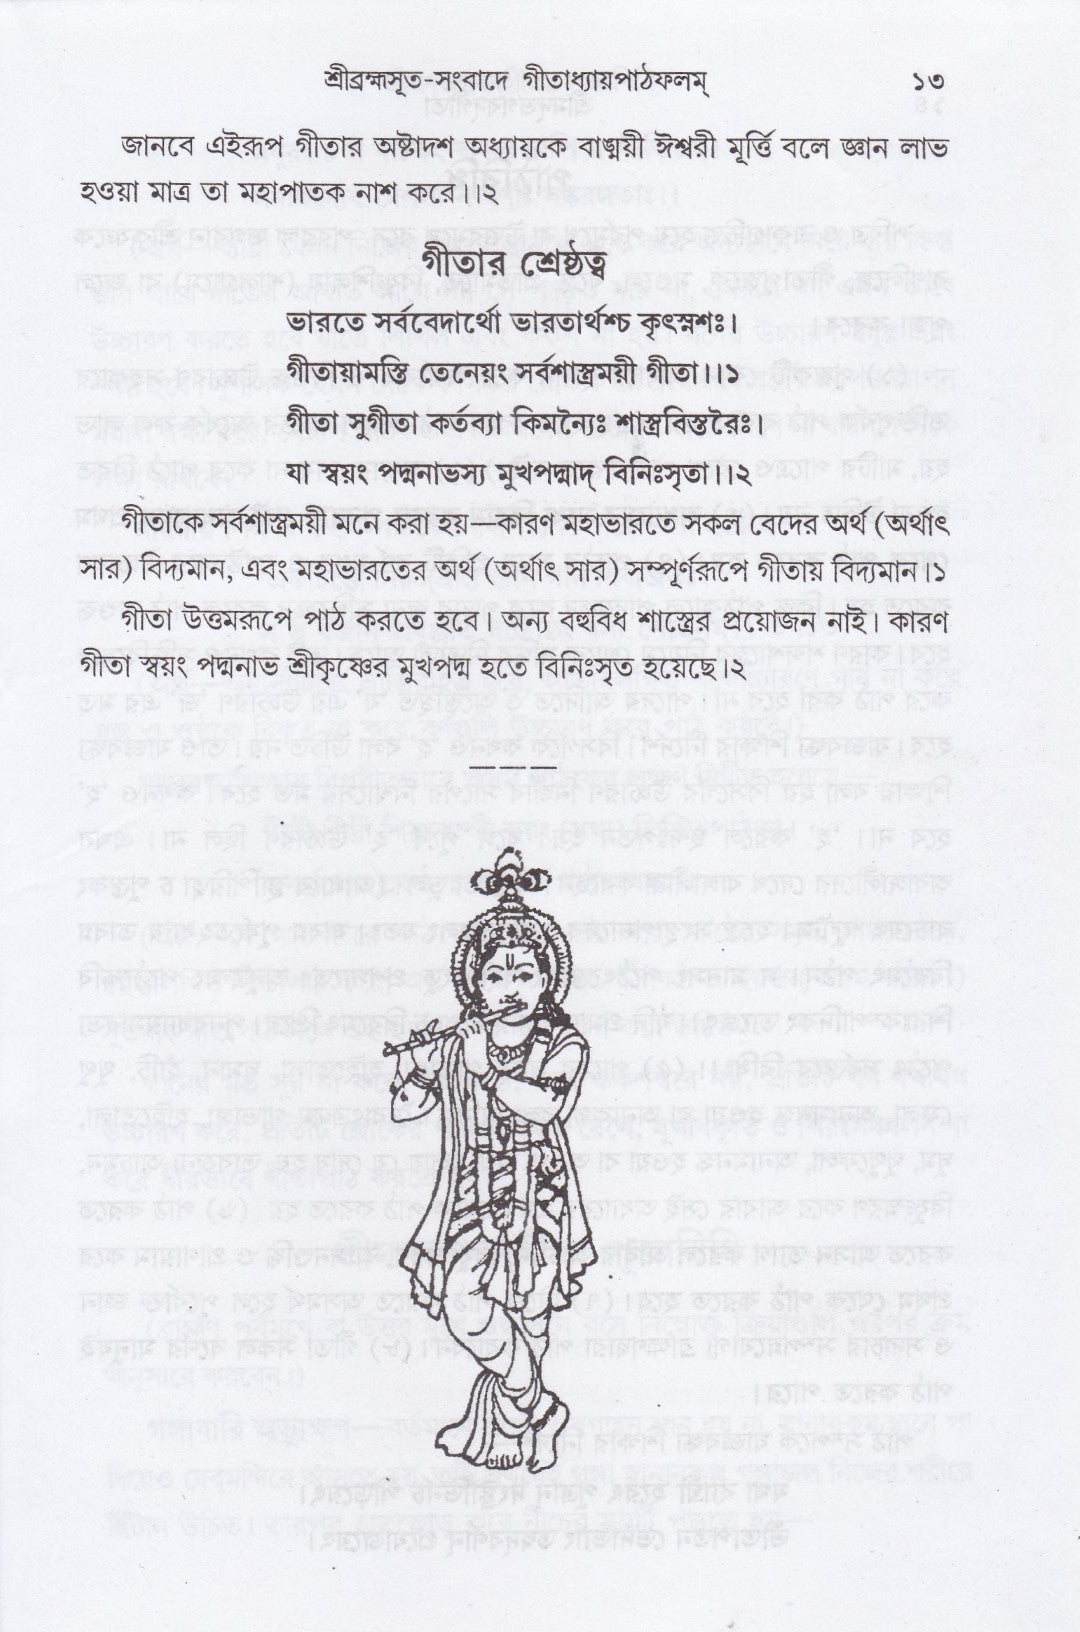 শ্রীব্রহ্মসূত-সংবাদে গীতাধ্যায়পাঠফলম্ ১৩
জানবে এইরূপ গীতার অষ্টাদশ অধ্যায়কে বাঙ্ময়ী ঈশ্বরী মূর্ত্তি বলে জ্ঞান লাভ
হওয়া মাত্র তা মহাপাতক নাশ করে।।২
গীতার শ্রেষ্ঠত্ব
ভারতে সর্ববেদার্থো ভারতার্থশ্চ কৃৎস্নশঃ।
গীতায়ামস্তি তেনেয়ং সর্বশাস্ত্রময়ী গীতা।।১
গীতা সুগীতা কর্তব্যা কিমন্যৈঃ শাস্ত্রবিস্তরৈঃ।
যা স্বয়ং পদ্মনাভস্য মুখপদ্মাদ্ বিনিঃসৃতা।।২
গীতাকে সর্বশাস্ত্রময়ী মনে করা হয়—কারণ মহাভারতে সকল বেদের অর্থ (অর্থাৎ
সার) বিদ্যমান, এবং মহাভারতের অর্থ (অর্থাৎ সার) সম্পূর্ণরূপে গীতায় বিদ্যমান।১
গীতা উত্তমরূপে পাঠ করতে হবে। অন্য বহুবিধ শাস্ত্রের প্রয়োজন নাই। কারণ
গীতা স্বয়ং পদ্মনাভ শ্রীকৃষ্ণের মুখপদ্ম হতে বিনিঃসৃত হয়েছে।২